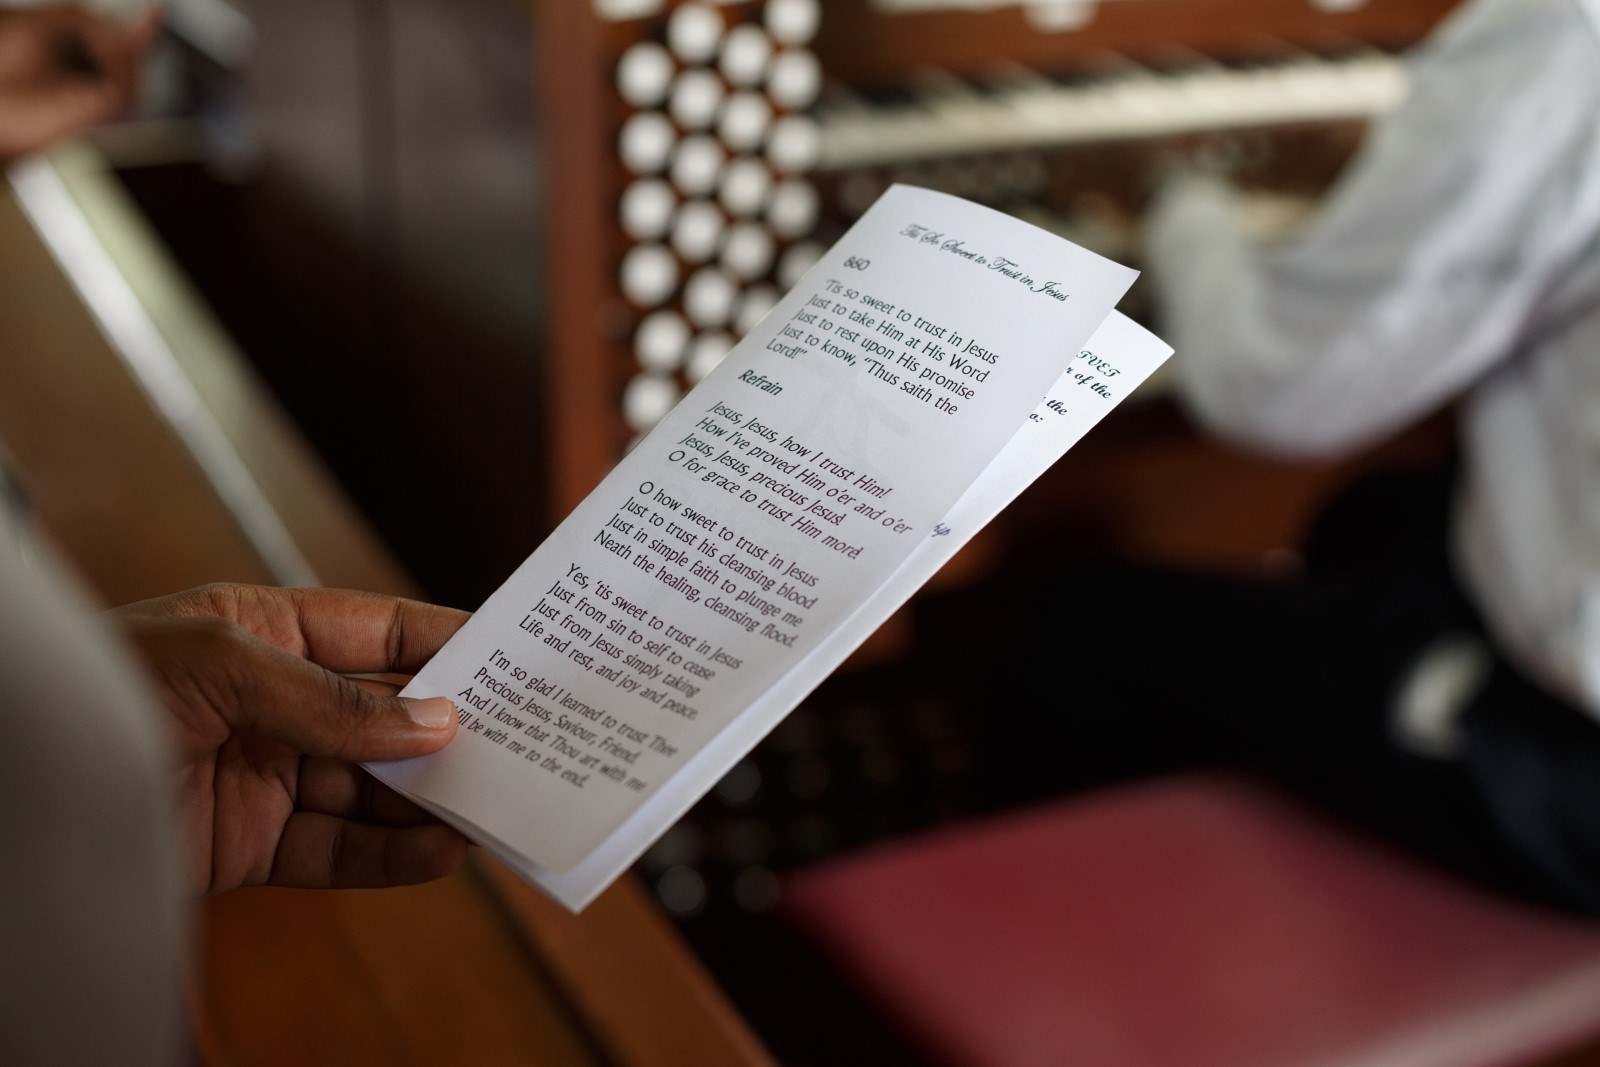 'Tis So Sweet to Trust in Jesus
860
'Tis so sweet to trust in Jesus
Just to take Him at His Word
Just to rest upon His promise
Just to know, “Thus saith the
Lord!”
Refrain
Jesus, Jesus, how I trust Him!
How I've proved Him o'er and o'er
Jesus, Jesus, precious Jesus!
O for grace to trust Him more!
O how sweet to trust in Jesus
Just to trust his cleansing blood
Just in simple faith to plunge me
Neath the healing, cleansing flood.
Yes, ‘tis sweet to trust in Jesus
Just from sin to self to cease
Just from Jesus simply taking
Life and rest, and joy and peace.
I'm so glad I learned to trust Thee
Precious Jesus, Saviour, Friend.
And I know that Thou art with me
Will be with me to the end.
of the
the